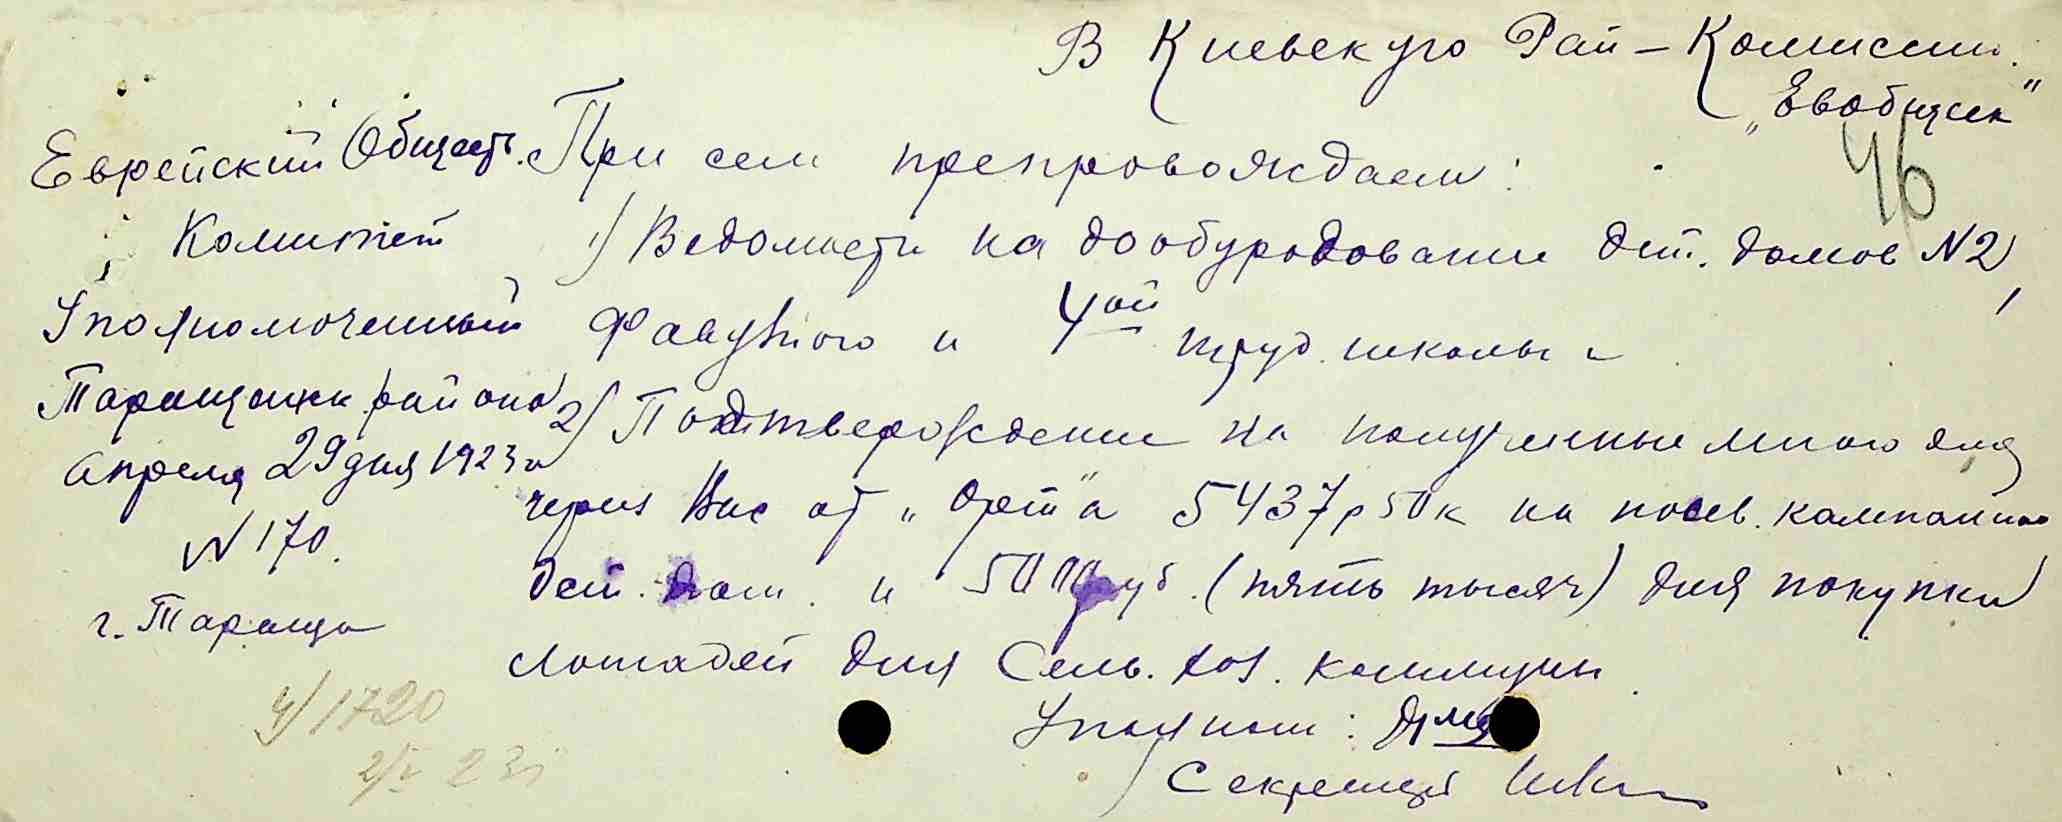 В Киевскую Рай-Комиссию
„Евобщек"
46
Еврейский Обществ.
Комитет
Уполномоченный
Таращанск района
Апреля 29 дня 1923 г
N 170.
г. Тараща
При сем препровождаем:
1) Ведомости на дообурудование дет. домов N2,
и 4ой труд. школы и
2) Подтверождение на полученные мною для
через Вас от „Орт"а 5437р 50к на посев. кампанию
дет. дом. и 5000 руб. (пять тысяч) для покупки
лошадей для Сель. хоз. коммуны
Уполном:
Секретарь
4/1720
2/V 23